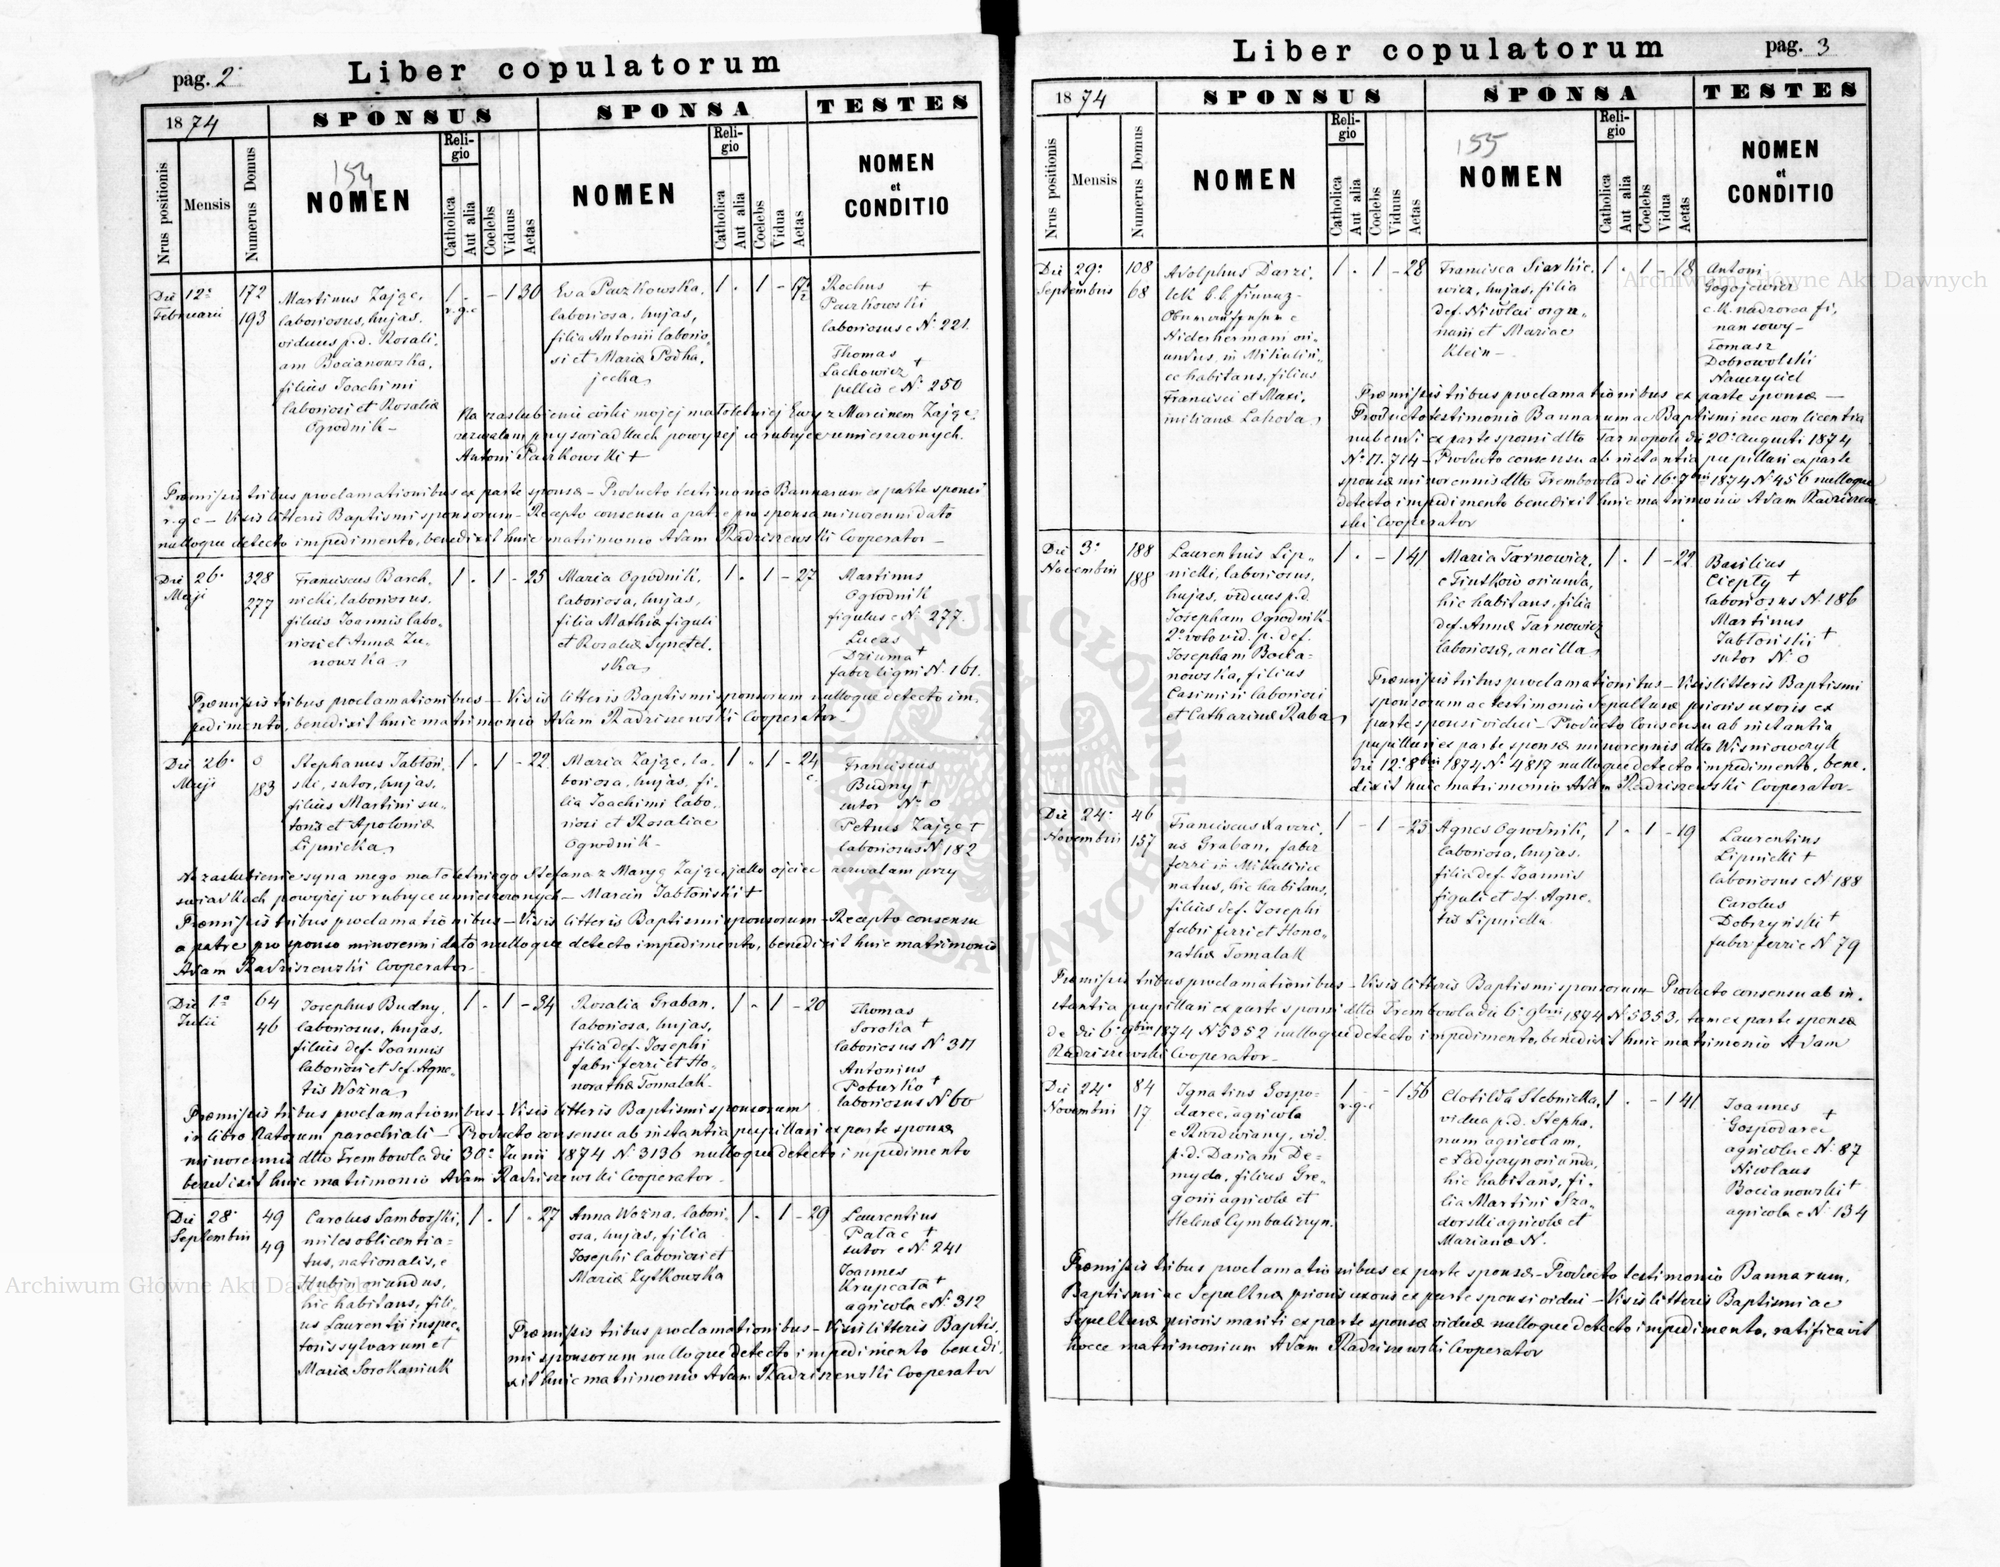 pag. 2
Liber copulatorum
1874
SPONSUS
SPONSA
TESTES
Nrus positionis
Mensis
Numerus Domus
154
NOMEN
Religio
Catholica
Aut alia
Coelebs
Viduus
Aetas
NOMEN
Religio
Catholica
Aut alia
Coelebs
Vidua
Aetas
NOMEN
et
CONDITIO
Die 12a
Februarii
172
193
Martinus Zajĝc,
laboriosus, hujas,
viduus p.d. Rosali-
am Bocianowska,
filius Joachimi
laboriosi et Rosaliæ
Ogrodnik -
1 . - 1 30
r.g.c
Eva Paczkowska,
laboriosa, hujas,
filia Antonii laborio-
si et Mariæ Podha-
jecka
1 . 1 - 17
Rochus +
Paczkowski
laboriosus e No 221.
Thomas
Lachowicz +
pellio e No 250
Na zaślubienie córki mojej małoletniej Ewy z Marcinem Zając
zezwalam przy świadkach powyżej w rubryce umieszczonych.
Antoni Paczkowski +
Præmissis tribus proclamationibus ex parte sponsæ - Producto testimonio Bannarum ex parte sponsi
r.g.c - Visis litteris Baptismi sponsorum - Recepto consensu a patre pro sponsa minorenni dato
nulloque detecto impedimento, benedixit huic matrimonio Adam Radziszewski Cooperator -
Die 26a
Maji
328
277
Franciscus Barch-
nicki, laboriosus,
filius Joannis labo-
riosi et Annæ Zu-
nowska
1 . 1 - 25
Maria Ogrodnik,
laboriosa, hujas,
filia Mathiæ figuli
et Rosaliæ Synetel-
ska
1 . 1 - 27
Martinus
Ogrodnik
figulus e No 277.
Lucas
Dziuma +
faber ligni N. 161.
Præmissis tribus proclamationibus - Visis litteris Baptismi sponsorum nulloque detecto im-
pedimento, benedixit huic matrimonio Adam Radziszewski Cooperator -
Die 26a
Maji
0
183
Stephanus Jabłoń-
ski, sutor, hujas,
filius Martini su-
toris et Apoloniæ
Lipnicka
1 . 1 - 22
Maria Zajĝc, la-
boriosa, hujas, fi-
lia Joachimi labo-
riosi et Rosaliae
Ogrodnik -
1 . 1 - 24
Franciscus
Budny +
sutor No 0
Petrus Zajĝc +
laboriosus N 182
Na zaślubienie syna mego małoletniego Stefana z Maryą Zając, jako ojciec zezwalam przy
świadkach powyżej w rubryce umieszczonych - Marcin Jabłoński +
Præmissis tribus proclamationibus - Visis litteris Baptismi sponsorum - Recepto consensu
a patre pro sponso minorenni dato nulloque detecto impedimento, benedixit huic matrimonio
Adam Radziszewski Cooperator -
Die 1a
Julii
64
46
Josephus Budny,
laboriosus, hujas,
filius def. Joannis
laboriosi et def. Agne-
tis Woźna
1 . 1 - 34
Rosalia Graban,
laboriosa, hujas,
filia def. Josephi
fabri ferri et Ho-
norathæ Tomalak -
1 . 1 - 20
Thomas
Sorotia +
laboriosus N 311
Antonius
Poburko +
laboriosus N 60
Præmissis tribus proclamationibus - Visis litteris Baptismi sponsorum
in libro Natorum parochiali - Producto consensu ab instantia pupillari ex parte sponsæ
minorennis dtto Trembowla die 30a Junii 1874 N 3136 nulloque detecto impedimento
benedixit huic matrimonio Adam Radziszewski Cooperator -
Die 28a
Septembris
49
49
Carolus Samborski,
miles oblicentia-
tus, nationalis, e
Hubin oriundus,
hic habitans, fili-
us Laurentii inspec-
toris sylvarum et
Mariæ Sorokaniuk
1 . 1 - 27
Anna Woźna, labori-
osa, hujas, filia
Josephi laboriosi et
Mariæ Zytkowska
1 . 1 - 29
Laurentius
Palac +
sutor e No 241
Joannes
Krupcata +
agricola e No 312
Præmissis tribus proclamationibus - Visis litteris Baptis-
mi sponsorum nulloque detecto impedimento benedi-
xit huic matrimonio Adam Radziszewski Cooperator
Liber copulatorum
pag. 3
1874
SPONSUS
SPONSA
TESTES
Nrus positionis
Mensis
Numerus Domus
NOMEN
Religio
Catholica
Aut alia
Coelebs
Viduus
Aetas
155
NOMEN
Religio
Catholica
Aut alia
Coelebs
Vidua
Aetas
NOMEN
et
CONDITIO
Die 29a
Septembris
108
68
Adolphus Darzi-
lek k.k. Finanz-
Oberaufseher e
Niderhermani ori-
undus, in Mikulin-
ce habitans, filius
Francisci et Maxi-
milianæ Lahoda
1 . 1 - 28
Francisca Siarkie-
wicz, hujas, filia
def. Nicolai orga-
narii et Mariae
Klein -
1 . 1 - 18
Antoni
Gogojewicz
c.k. nadzorca fi-
nansowy -
Tomasz
Dobrowolski
Nauczyciel
Præmissis tribus proclamationibus ex parte sponsæ -
Producto testimonio Bannarum ac Baptismi nec non licentia
nubendi ex parte sponsi dtto Tarnopoli die 20a Augusti 1874
No 11.714 - Producto consensu ab instantia pupillari ex parte
sponsæ minorennis dtto Trembowla die 16a 7bris 1874 No 456 nulloque
detecto impedimento benedixit huic matrimonio Adam Radziszew-
ski Cooperator
Die 3a
Novembris
188
188
Laurentius Lip-
nicki, laboriosus,
hujas, viduus p.d.
Josepham Ogrodnik -
2o voto vid. p. def.
Josepham Bocia-
nowska, filius
Casimiri laboriosi
et Catharinæ Raba
1 . - 1 41
Maria Tarnowicz,
e Tiutków oriunda,
hic habitans, filia
def. Annæ Tarnowicz
laboriosæ, ancilla
1 . 1 - 22
Basilius
Ciepły +
laboriosus N. 186
Martinus
Jabłoński +
sutor No 0
Præmissis tribus proclamationibus - Visis litteris Baptismi
sponsorum ac testimonio Sepulturæ prioris uxoris ex
parte sponsi vidui - Producto Consensu ab instantia
pupillari ex parte sponsæ minorennis dtto Wiśniowczyk
die 12a 8bris 1874 No 4817 nulloque detecto impedimento, bene-
dixit huic matrimonio Adam Radziszewski Cooperator -
Die 24a
Novembris
46
157
Franciscus Xaveri-
us Graban, faber
ferri in Mikulince
natus, hic habitans,
filius def. Josephi
fabri ferri et Hono-
rathæ Tomalak
1 - 1 - 25
Agnes Ogrodnik,
laboriosa, hujas.
filia def. Joannis
figuli et def. Agne-
tis Lipnicka
1 . 1 - 19
Laurentius
Lipnicki +
laboriosus e No 188
Carolus
Dobrzyński +
faber ferri e No 79
Præmissis tribus proclamationibus - Visis litteris Baptismi sponsorum - Producto consensu ab in-
stantia pupillari ex parte sponsi dtto Trembowla die 6a 9bris 1874 N 5353, tam ex parte sponsæ
de die 6a 9bris 1874 N 5352 nulloque detecto impedimento, benedixit huic matrimonio Adam
Radziszewski Cooperator -
Die 24a
Novembris
84
17
Ignatius Gospo-
darec, agricola
e Rozdwiany, vid.
p.d. Dariam De-
myda, filius Gre-
gorii agricolæ et
Helenæ Cymbaliczyn.
1 . - 1 56
r.g.c
Clotilda Stebnicka,
vidua p.d. Stepha-
num agricolam,
e Ładyczyn oriunda,
hic habitans, fi-
lia Martini Sza-
dorski agricolæ et
Marianæ N.
1 . - 1 41
Joannes +
Gospodarec
agricola e No 87
Nicolaus
Bocianowski +
agricola e No 134
Præmissis tribus proclamationibus ex parte sponsæ - Producto testimonio Bannarum,
Baptismi ac Sepulturæ prioris uxoris ex parte sponsi vidui - Visis litteris Baptismi ac
Sepulturæ prioris mariti ex parte sponsæ viduæ nulloque detecto impedimento, ratificavit
hocce matrimonium Adam Radziszewski Cooperator
Archiwum Główne Akt Dawnych
Archiwum Główne Akt Dawnych
ARCHIWUM GŁÓWNE AKT DAWNYCH